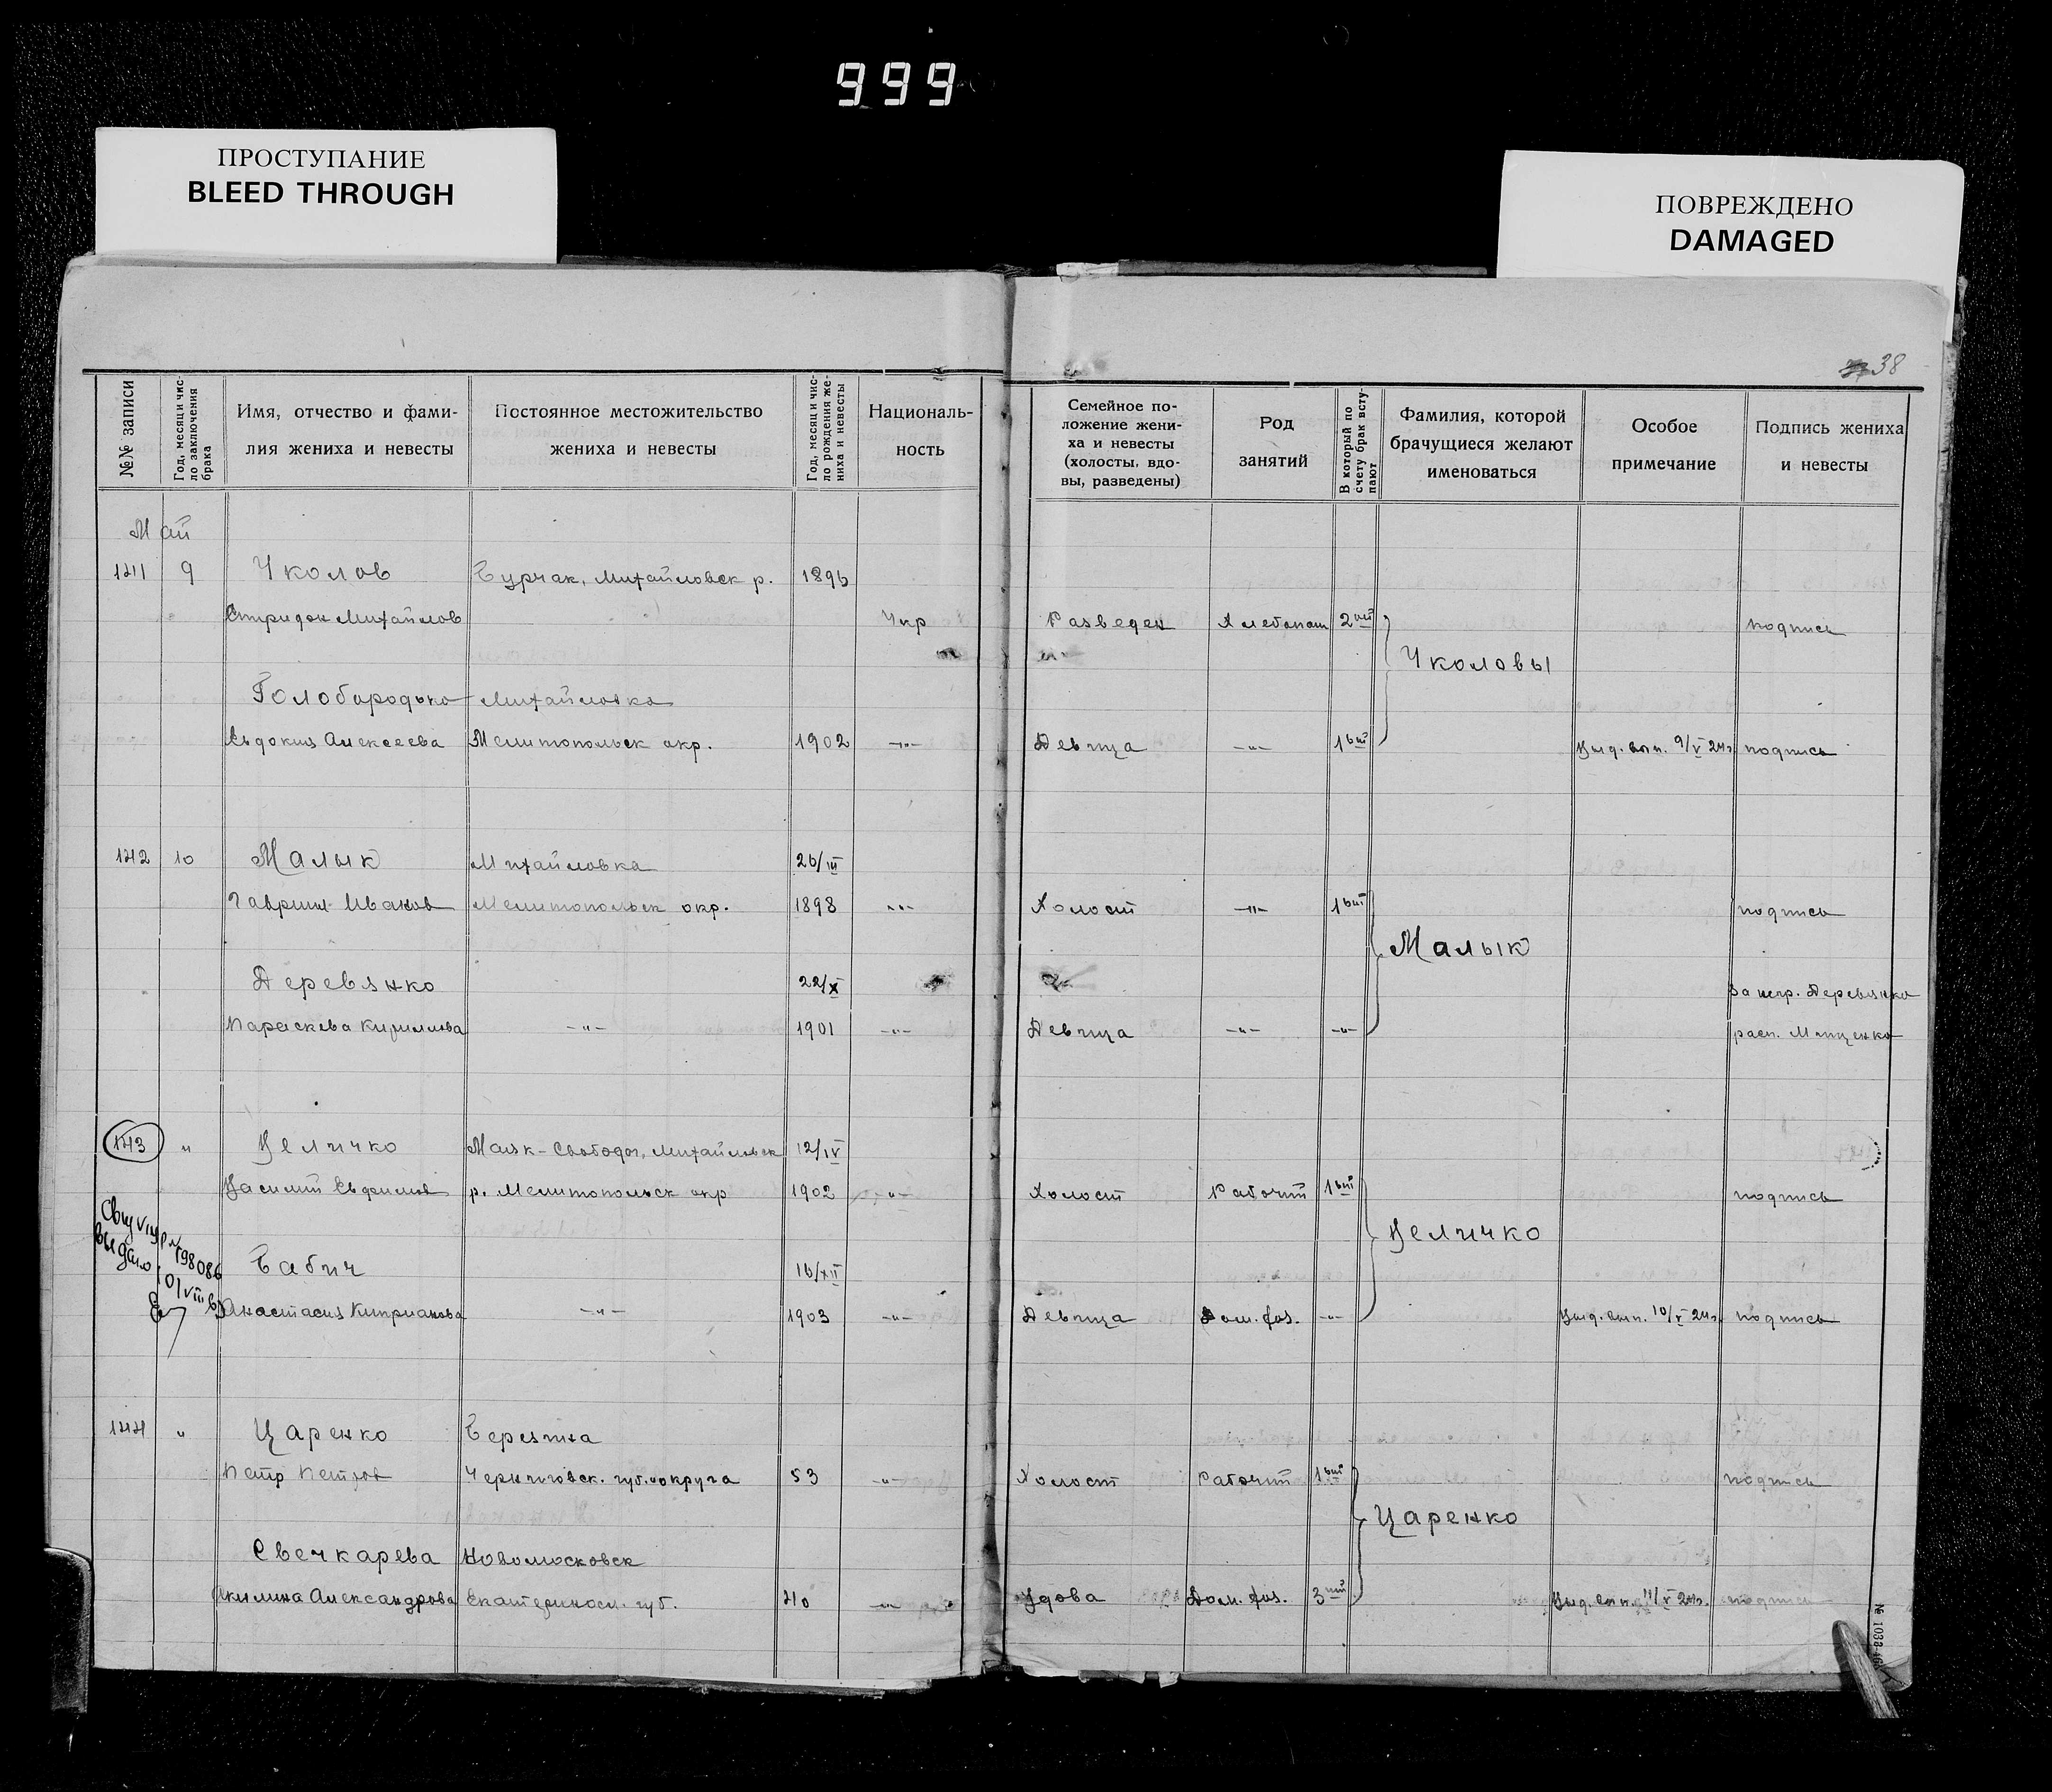 999
ПРОСТУПАНИЕ
BLEED THROUGH
ПОВРЕЖДЕНО
DAMAGED
38
№№ записи
Год, месяц и чис-
ло заключения
брака
Имя, отчество и фами-
лия жениха и невесты
Постоянное местожительство
жениха и невесты
Год, месяц и чис-
ло рождения же-
ниха и невесты
Националь-
ность
Семейное по-
ложение жени-
ха и невесты
(холосты, вдо-
вы, разведены)
Род
занятий
В который по
счету брак всту-
пают
Фамилия, которой
брачущиеся желают
именоваться
Особое
примечание
Подпись жениха
и невесты
Май
141 9 Уколов Бурчак, Михайловск р. 1896
Спиридон Михайлов Укр Разведен Хлебопаш 2ой подпись
Уколовы
Голобородько Михайловка
Евдокия Алексеева Мелитопольск окр. 1902 -"- Девица -"- 1ый Выд. вып. 9/V 24г. подпись
142 10 Малык Михайловка 26/III
Гавриил Иванов Мелитопольск окр. 1898 -"- Холост -"- 1ый подпись
Малык
Деревянко 22/X За негр. Деревянко
Параскева Кириллова -"- 1901 -"- Девица -"- -"- расп. Мищенко
143 " Величко Маяк-Свободы, Михайловск 12/IV
Василий Евфимов р. Мелитопольск окр 1902 -"- Холост Рабочий 1ый подпись
Величко
выдано 198086
Бабич 16/XII
Анастасия Киприанова -"- 1903 -"- Девица Дом. хоз. -"- Выд. вып. 10/V 24г. подпись
144 " Царенко Березина
Петр Петров Черниговск. губ. округа 53 -"- Холост Рабочий 1ый подпись
Царенко
Свечкарева Новомосковск
Акилина Александрова Екатеринosл. губ. 40 -"- Удова Дом. хоз. 3ий Выд. вып. 11/V 24г. подпись
№ 1033-46